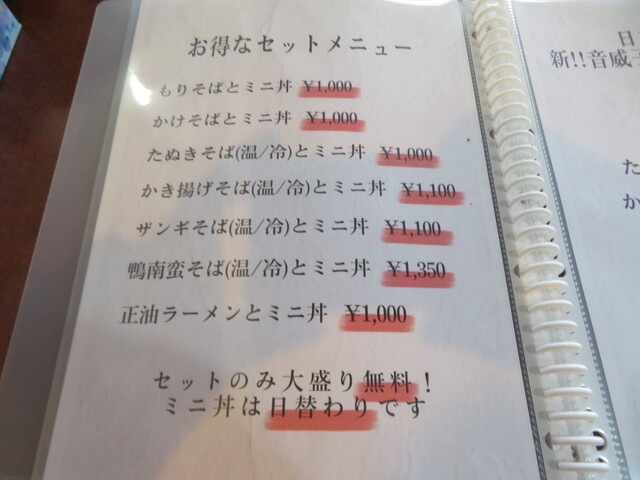 お得なセットメニュー
もりそばとミニ丼 ¥1,000
かけそばとミニ丼 ¥1,000
たぬきそば(温/冷)とミニ丼 ¥1,000
かき揚げそば(温/冷)とミニ丼 ¥1,100
ザンギそば(温/冷)とミニ丼 ¥1,100
鴨南蛮そば(温/冷)とミニ丼 ¥1,350
正油ラーメンとミニ丼 ¥1,000
セットのみ大盛り無料！
ミニ丼は日替わりです
新!!音威子
た
か